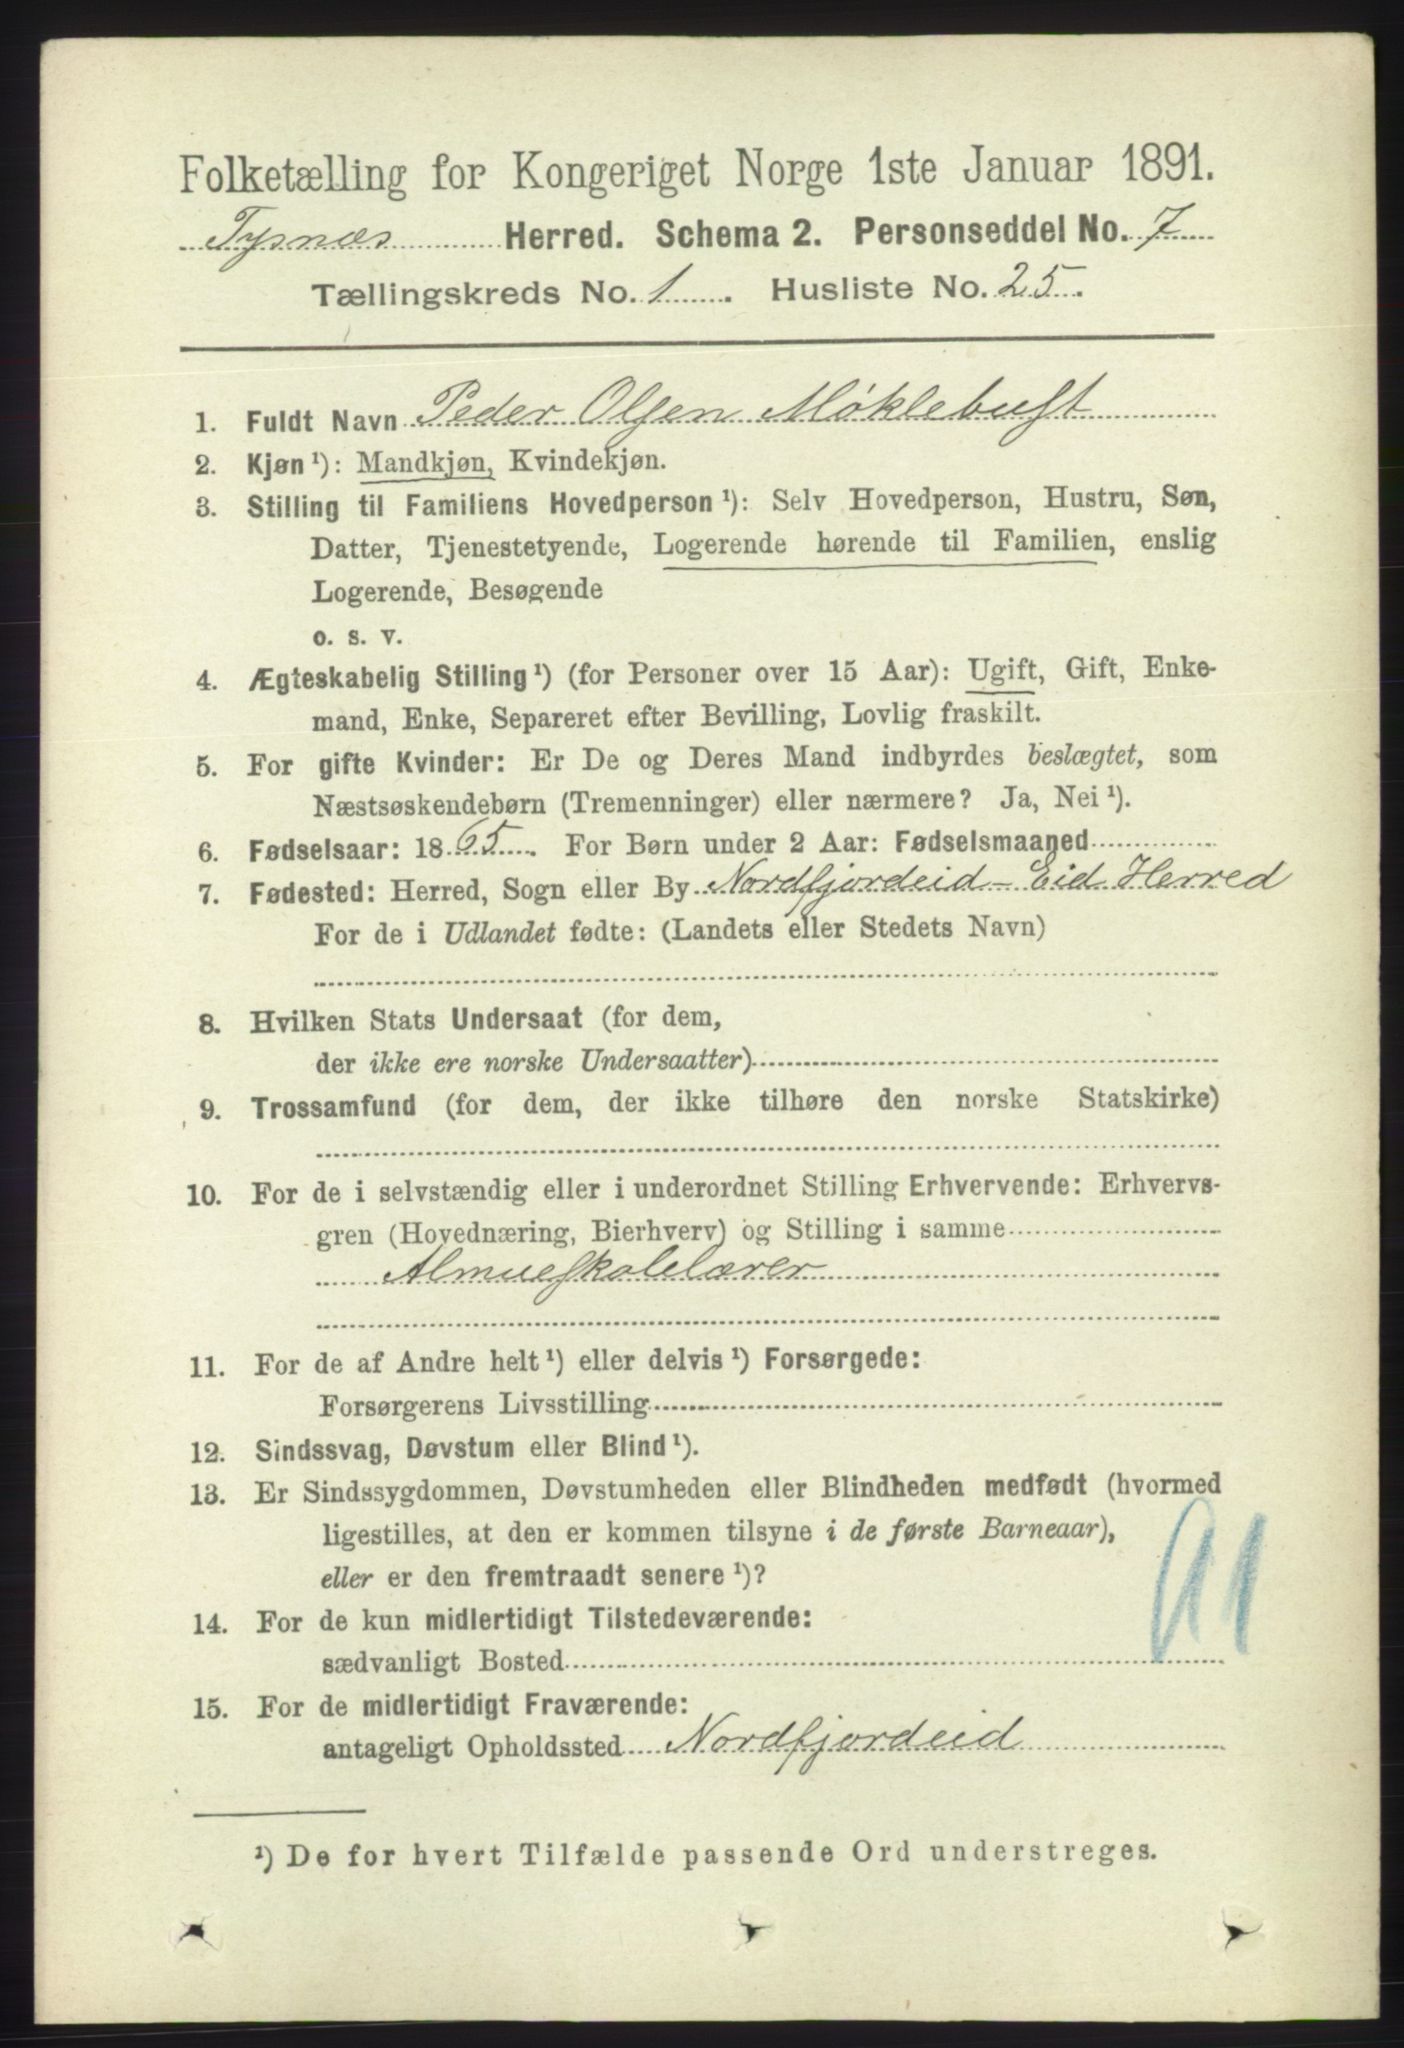 Folketælling for Kongeriget Norge 1ste Januar 1891.
Tysnæs Herred. Schema 2. Personseddel No. 7
Tællingskreds No. 1. Husliste No. 25.
1. Fuldt Navn Peder Olsen Møklebust
2. Kjøn ¹): Mandkjøn, Kvindekjøn.
3. Stilling til Familiens Hovedperson ¹): Selv Hovedperson, Hustru, Søn,
Datter, Tjenestetyende, Logerende hørende til Familien, enslig
Logerende, Besøgende
o. s. v.
4. Ægteskabelig Stilling ¹) (for Personer over 15 Aar): Ugift, Gift, Enke-
mand, Enke, Separeret efter Bevilling, Lovlig fraskilt.
5. For gifte Kvinder: Er De og Deres Mand indbyrdes beslægtet, som
Næstsøskendebørn (Tremenninger) eller nærmere? Ja, Nei ¹).
6. Fødselsaar: 1865. For Børn under 2 Aar: Fødselsmaaned
7. Fødested: Herred, Sogn eller By Nordfjordeid - Eid Herred
For de i Udlandet fødte: (Landets eller Stedets Navn)
8. Hvilken Stats Undersaat (for dem,
der ikke ere norske Undersaatter)
9. Trossamfund (for dem, der ikke tilhøre den norske Statskirke)
10. For de i selvstændig eller i underordnet Stilling Erhvervende: Erhvervs-
gren (Hovednæring, Bierhverv) og Stilling i samme
Almueskolelærer
11. For de af Andre helt ¹) eller delvis ¹) Forsørgede:
Forsørgerens Livsstilling
12. Sindssvag, Døvstum eller Blind ¹).
13. Er Sindssygdommen, Døvstumheden eller Blindheden medfødt (hvormed
ligestilles, at den er kommen tilsyne i de første Barneaar),
eller er den fremtraadt senere ¹)?
14. For de kun midlertidigt Tilstedeværende:
sædvanligt Bosted
15. For de midlertidigt Fraværende:
antageligt Opholdssted Nordfjordeid
¹) De for hvert Tilfælde passende Ord understreges.